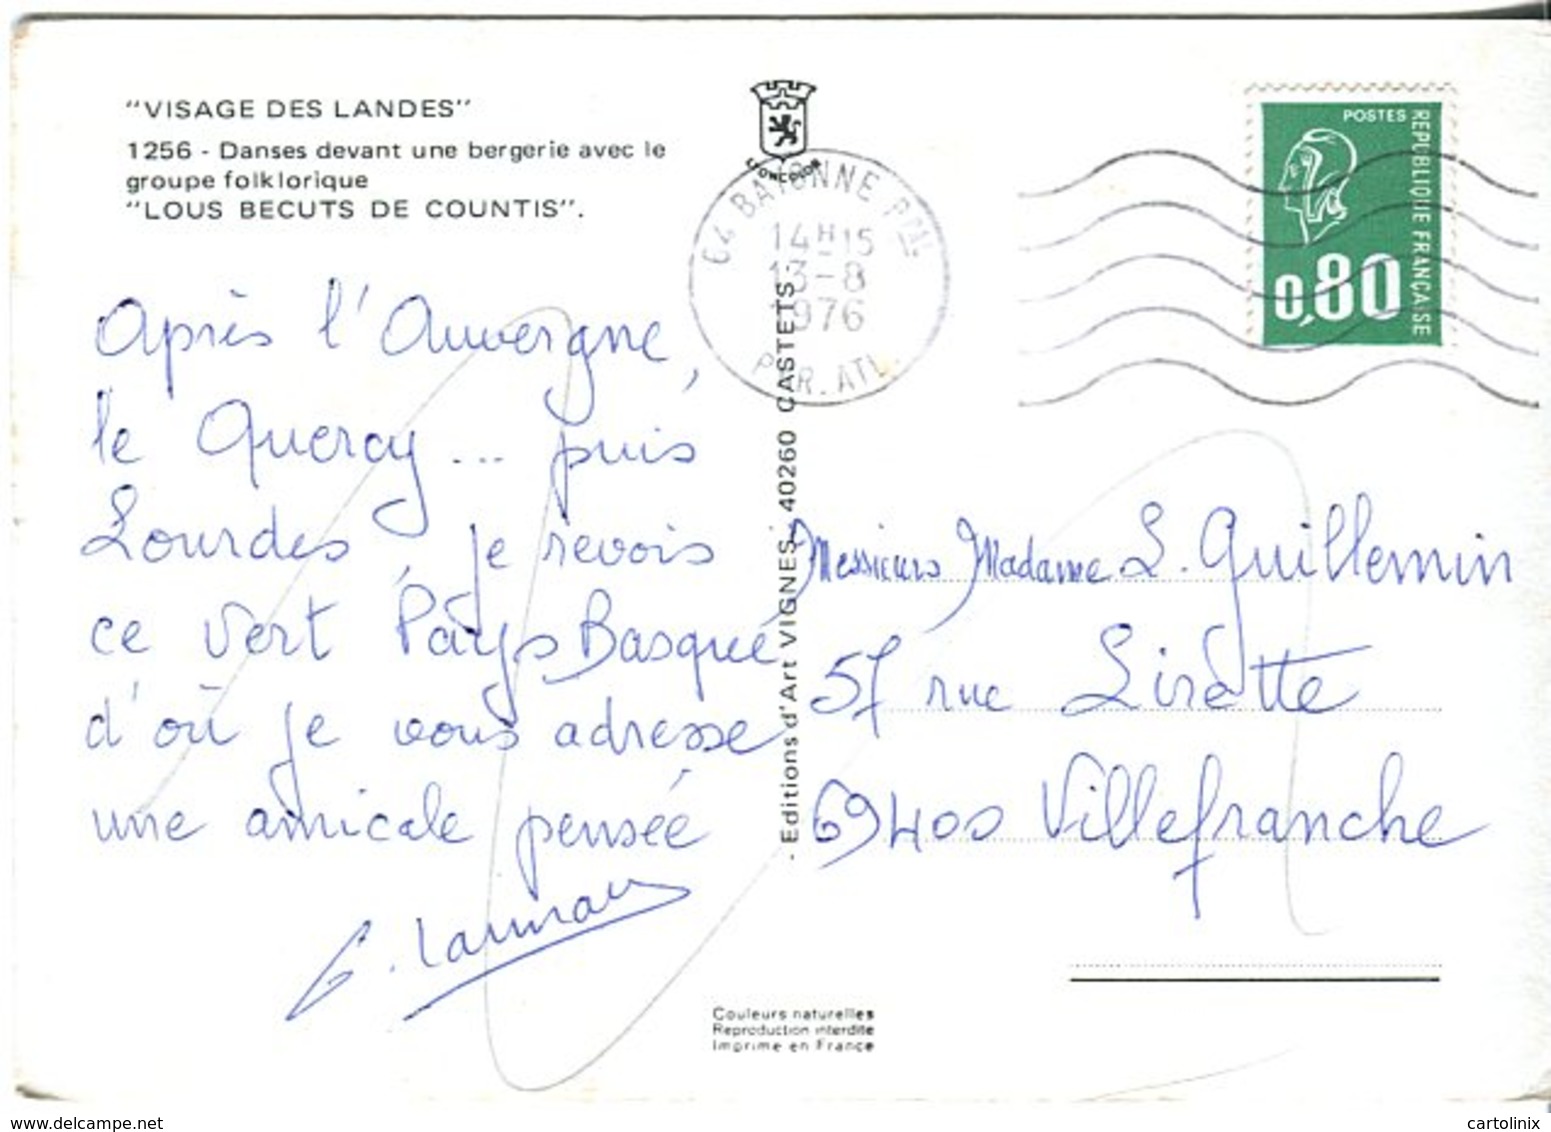 "VISAGE DES LANDES"
1256 - Danses devant une bergerie avec le
groupe folklorique
"LOUS BECUTS DE COUNTIS".
LEONCOLOR
64 BAYONNE PPAL
14H15
13-8
1976
PYR. ATL.
POSTES
REPUBLIQUE FRANÇAISE
0,80
Après l'Auvergne,
le Quercy... puis
Lourdes, je revois
ce vert Pays Basque
d'où je vous adresse
une amicale pensée
Editions d'Art VIGNES. 40260 CASTETS.
Messieurs Madame L. Guillemin
57 rue Lirette
69400 Villefranche
Couleurs naturelles
Reproduction interdite
Imprimé en France
www.delcampe.net
cartolinix